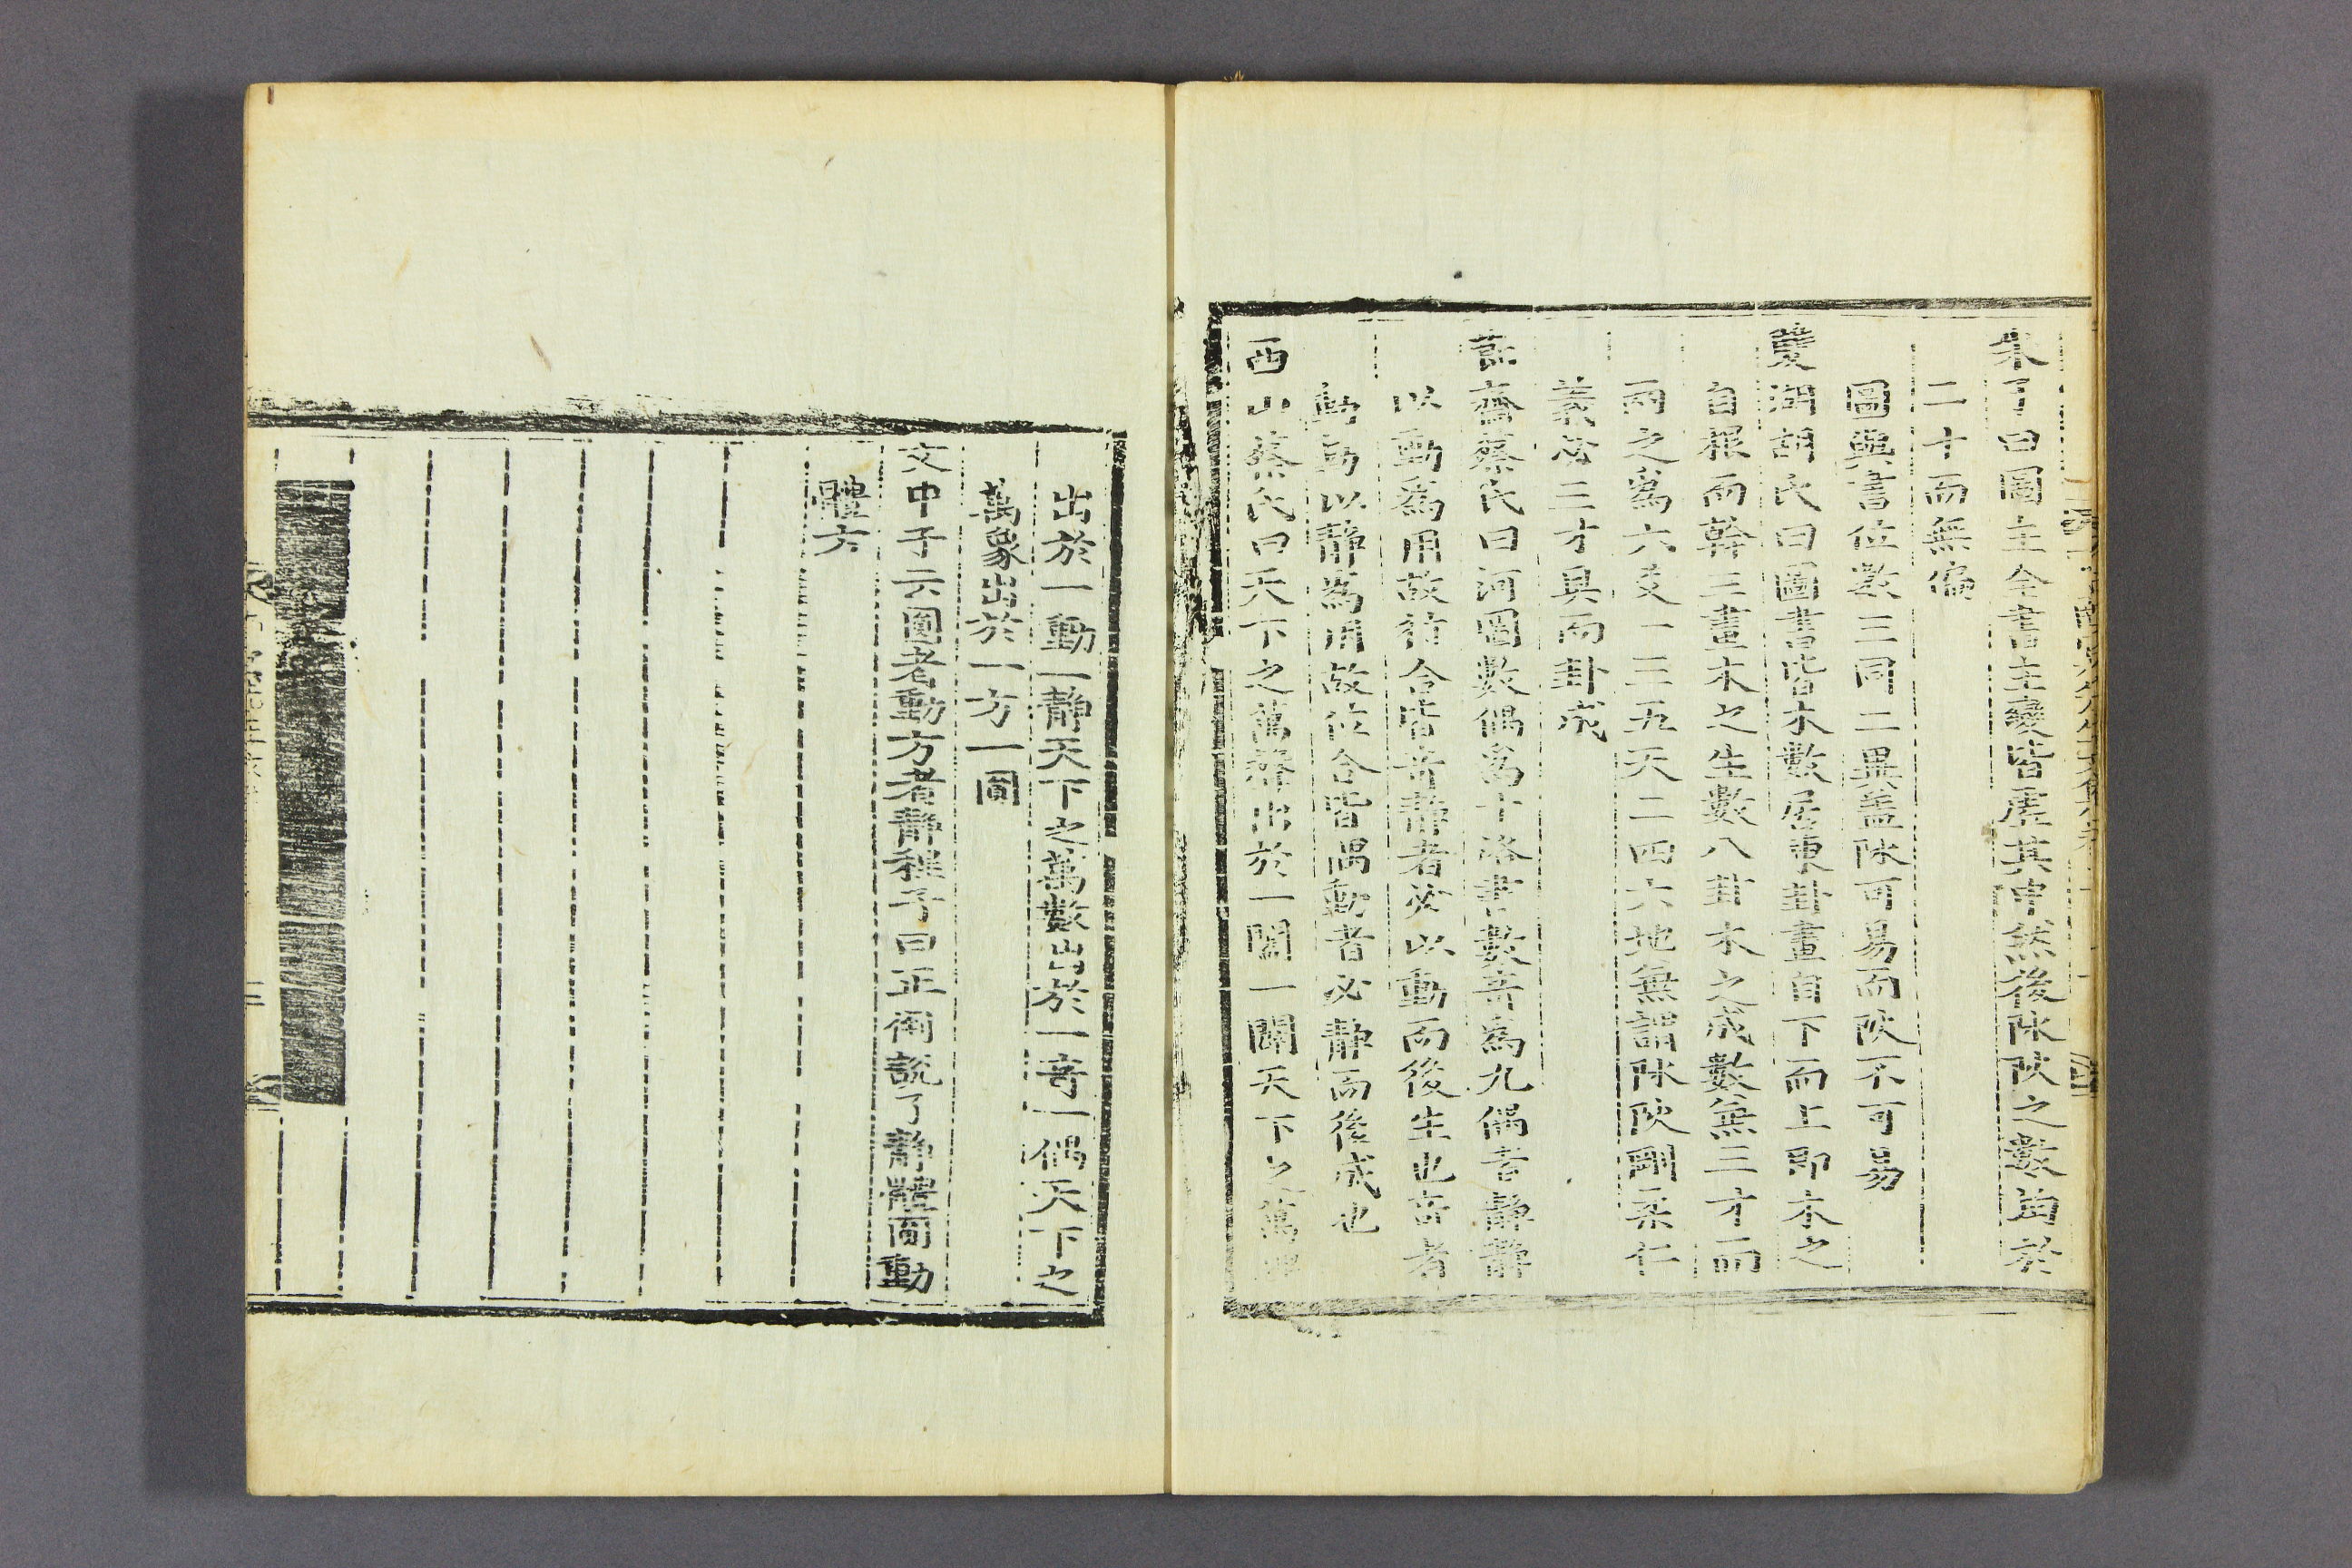 朱子曰圖主全書主變皆虛其中然後陰陽之數均於
二十而無偏
圖與書位數三同二異盖陰可易而陽不可易
雙湖胡氏曰圖書皆木數居東卦畫自下而上即木之
自根而幹三畫木之生數八卦木之成數無三才而
兩之為六爻一三五天二四六地無謂陰陽剛柔仁
義案三才具而卦成
節齋蔡氏曰河圖數偶為十洛書數奇為九偶者靜靜
以動為用故行合皆奇靜者必以動而後生也奇者
動動以靜為用故位合皆偶動者必靜而後成也
西山蔡氏曰天下之萬聲出於一闔一闢天下之萬理
出於一動一靜天下之萬數出於一奇一偶天下之
萬象出於一方一圓
文中子云圓者動方者靜程子曰正倒說了靜體圓動
體方